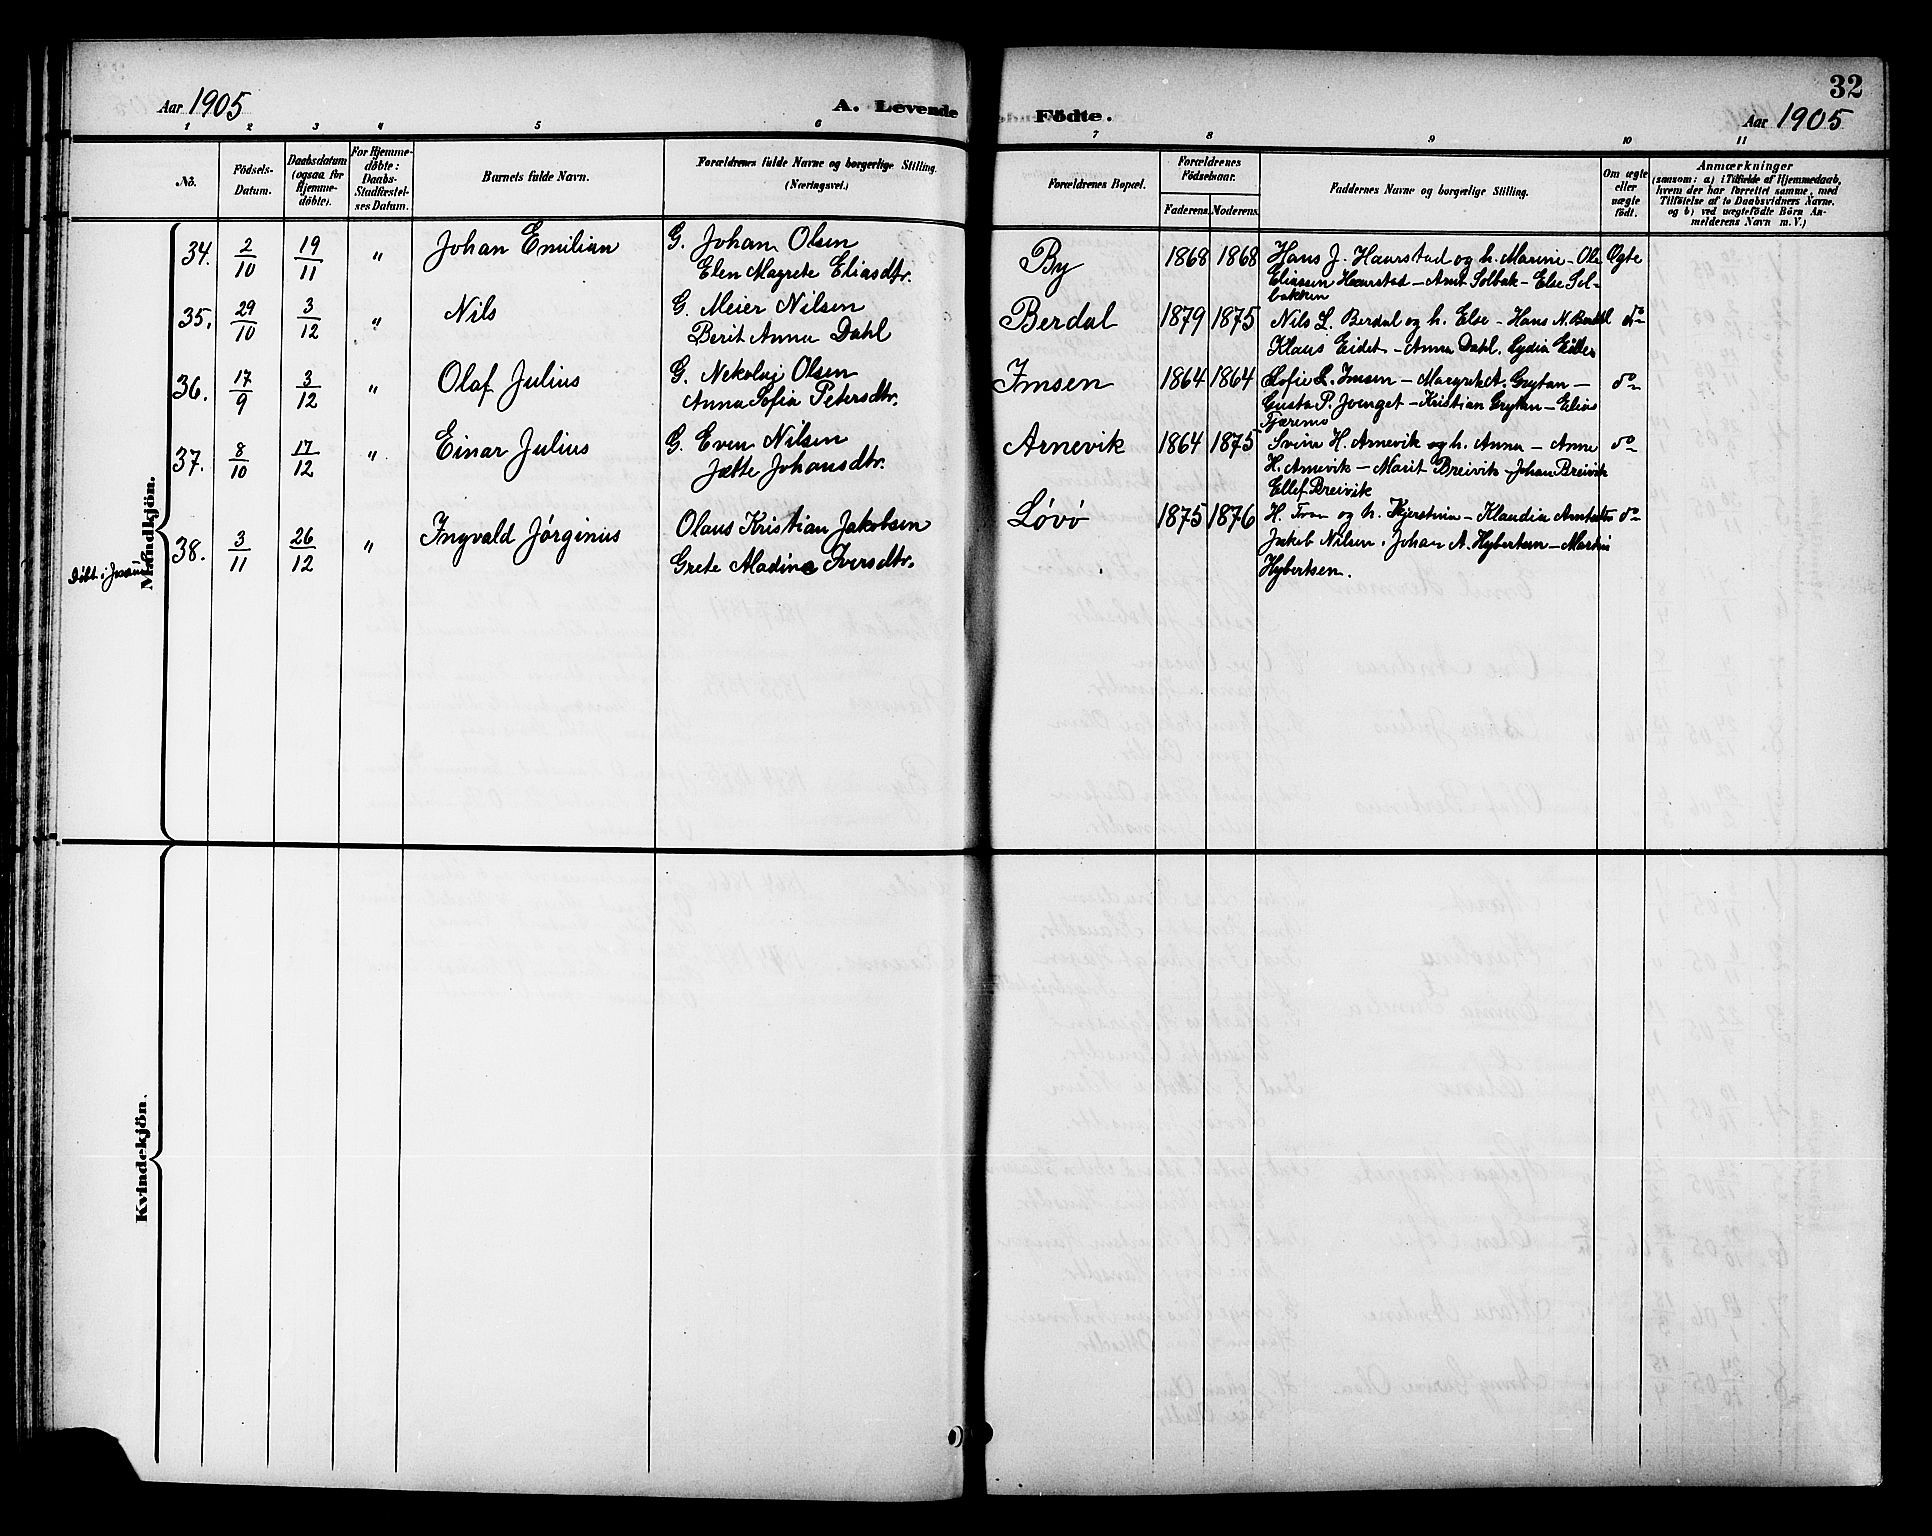 32
Aar 1905
A. Levende Födte.
Aar 1905
1 2 3 4 5 6 7 8 9 10 11
No.
Födsels-
Datum.
Daabsdatum
(ogsaa for
Hjemme-
døbte).
For Hjemme-
døbte:
Daabs-
Stadfæstel-
ses Datum.
Barnets fulde Navn.
Forældrenes fulde Navne og borgerlige Stilling.
(Næringsvei.)
Forældrenes Bopæl.
Forældrenes
Födselsaar.
Faderens. Moderens.
Faddernes Navne og borgerlige Stilling.
Om ægte
eller
uægte
født.
Anmærkninger
(saasom: a) i Tilfælde af Hjemmedaab,
hvem der har forrettet samme, med
Tilføielse af to Daabsvidners Navne.
og b) ved uægtefödte Börn An-
melderens Navn m. V.)
Mandkjön.
34. 2/10 19/11 " Johan Emilian
G. Johan Olsen
Elen Magrete Eliasdtr.
By 1868 1868
Hans J. Haurstad og h. Marine - Ole
Eliassen Haurstad - Arnt Solbak - Else Sol-
bakken
Ægte
35. 29/10 3/12 " Nils
G. Meier Nilsen
Berit Anna Dahl
Berdal 1879 1875
Nils L. Berdal og h. Else - Hans N. Berdal
Klaus Eidet - Anna Dahl. Lydia
do
36. 17/9 3/12 " Olaf Julius
G. Nekolai Olsen
Anna Sofia Petersdtr.
Imsen 1864 1864
Sofie L. Imsen - Margrete A. Grytan -
Gusta P. - Kristian Grytan - Elias
do
37. 8/10 17/12 " Einar Julius
G. Even Nilsen
Jette Johansdtr.
Arnevik 1864 1875
H. Arnevik og h. Anna - Anne
H. Arnevik - Marit Breivik - Johan Breivik
Ellef Breivik
do
38. 3/11 26/12 " Ingvald Jørginius
Olaus Kristian Jakobsen
Grete Madine Iversdtr.
Løvø 1875 1876
H. og h. Kjerstina - Klaudia
Jakob Nilsen. Johan A. Hybertsen - Martin
Hybertsen.
do
Døbt i
Kvindekjön.